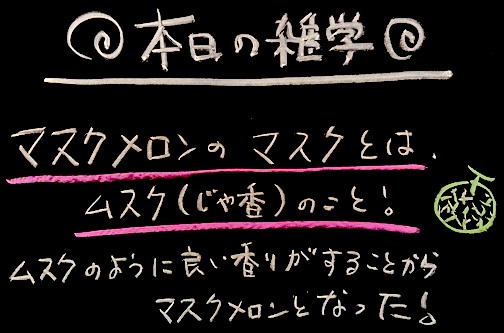 本日の雑学
マスクメロンの マスクとは、
ムスク(じゃ香)のこと!
ムスクのように良い香りがすることから
マスクメロンとなった!